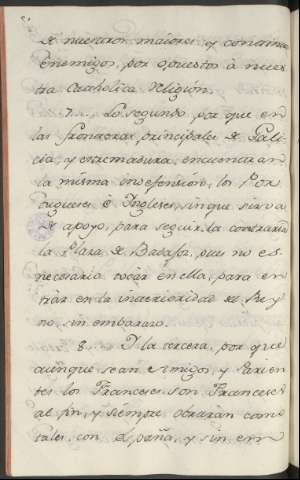 de nuestros maiores, y continuos
Enemigos, por opuestos à nues
tra Catholica Religion.
7. Lo segundo, por que en
las fronteras principales de Gali
cia, y extremadura, encuentran
la misma indefension, los Por
tugueses è Ingleses, sin que sirva
de apoyo, para seguir la contraria
la Plaza de Badajoz, pues no es
necesario tocar en ella, para en
trar en la interioridad del Rey
no, sin embarazo.
8. Y la tercera, por que
aunque sean Amigos, y Parien
tes los Franceses, son Franceses
al fin, y siempre obrarán como
tales, con España, y sin em